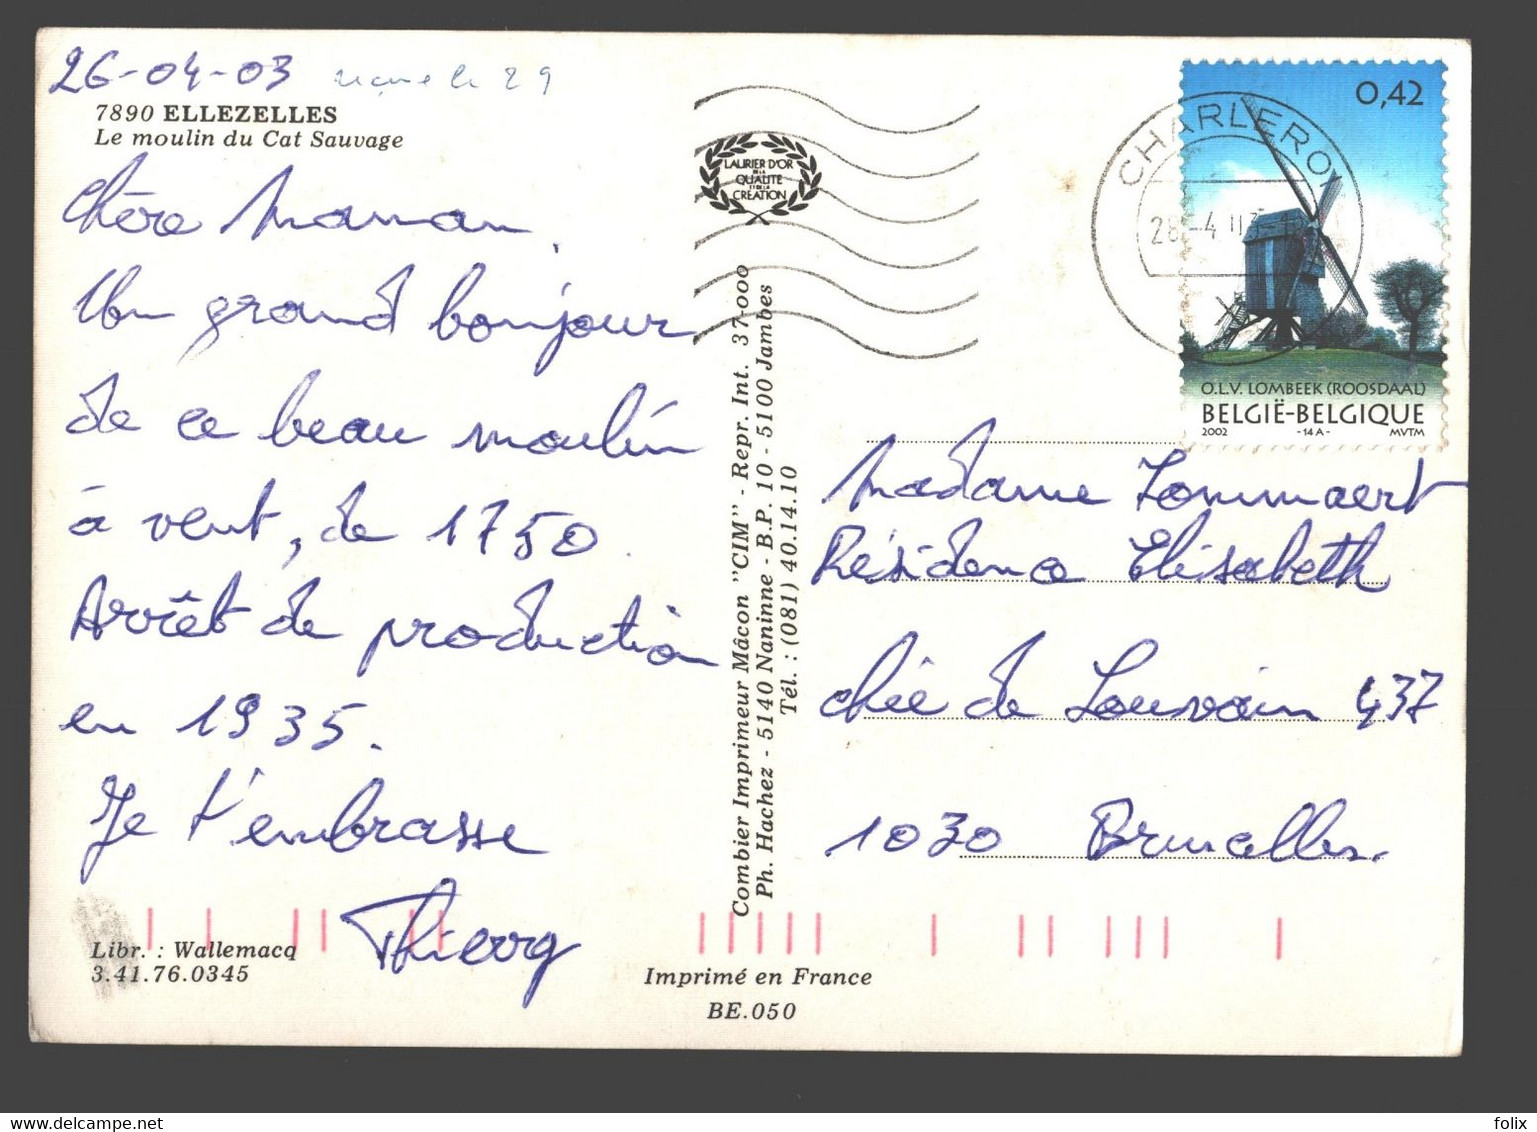 26-04-03 reçue le 29
7890 ELLEZELLES
Le moulin du Cat Sauvage
Chère Maman,
Un grand bonjour
de ce beau moulin
à vent, de 1750.
Arrêt de production
en 1935.
Je t'embrasse
Thierry
Libr. : Wallemacq
3.41.76.0345
LAURIER D'OR
DE LA
QUALITE
ET DE LA
CREATION
Combier Imprimeur Mâcon "CIM" - Repr. Int. 37-000
Ph. Hachez - 5140 Naninne - B.P. 10 - 5100 Jambes
Tél. : (081) 40.14.10
Imprimé en France
BE.050
CHARLEROI
0,42
O.L.V. LOMBEEK (ROOSDAAL)
BELGIË-BELGIQUE
2002 -14A- MVTM
Madame Lommaert
Résidence Elisabeth
Chée de Louvain 437
1030 Bruxelles.
felix